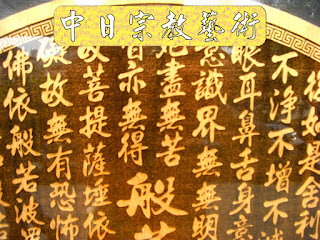 中日宗教藝術
復如是舍利
不淨不增不減
眼耳鼻舌身意
意識界無無明
死盡無苦
般若
智亦無得
故菩提薩埵依
礙故無有恐怖
佛依般若波羅